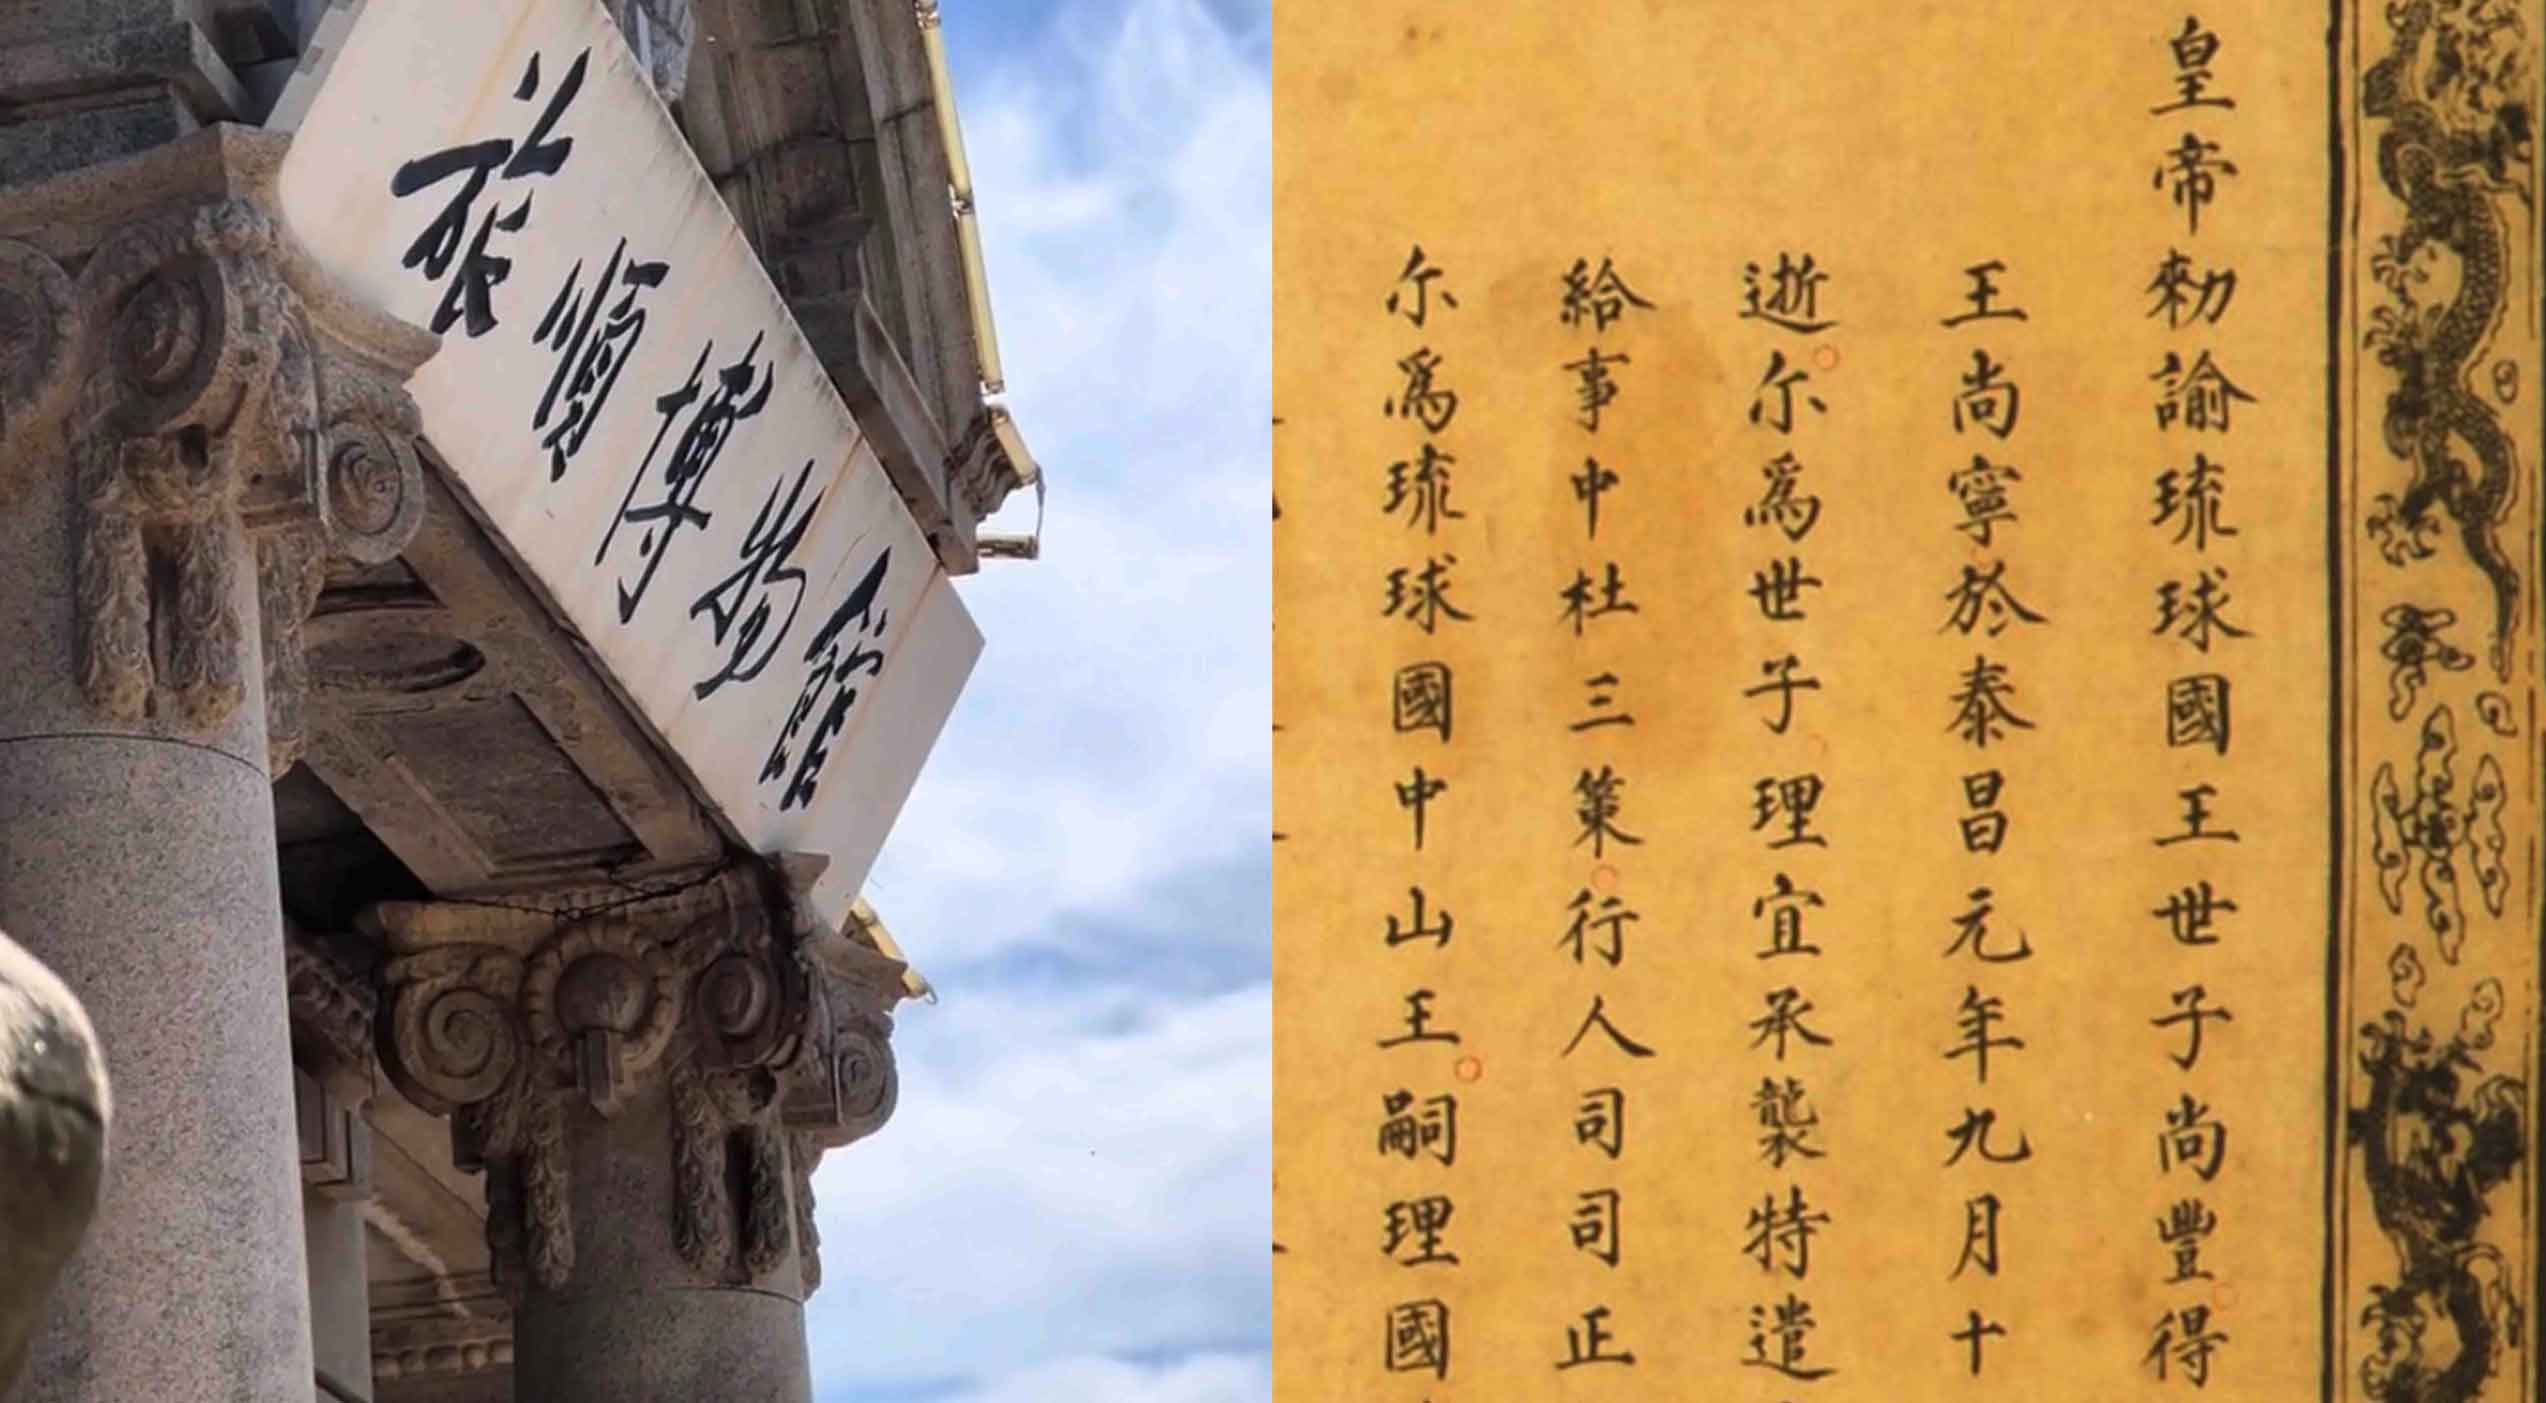 旅順博物館
皇帝勑諭琉球國王世子尚豐得
王尚寧於泰昌元年九月十
逝尓爲世子理宜承襲特遣
給事中杜三策行人司司正
尓爲琉球國中山王嗣理國